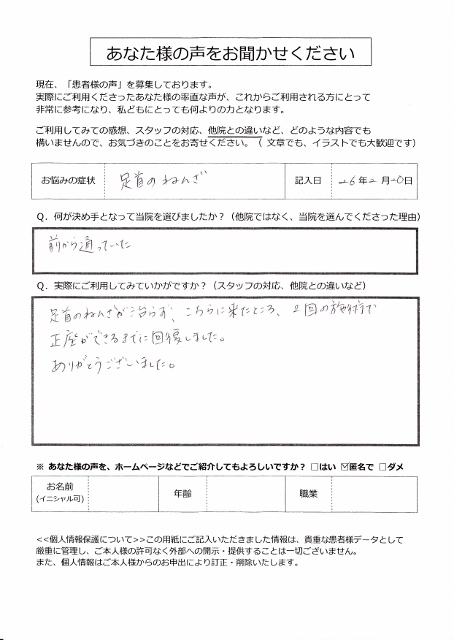 あなた様の声をお聞かせください
現在、「患者様の声」を募集しております。
実際にご利用くださったあなた様の率直な声が、これからご利用される方にとって
非常に参考になり、私どもにとっても何よりの力となります。
ご利用してみての感想、スタッフの対応、他院との違いなど、どのような内容でも
構いませんので、お気づきのことをお寄せください。（ 文章でも、イラストでも大歓迎です）
お悩みの症状 足首のねんざ 記入日 26年2月20日
Q．何が決め手となって当院を選びましたか？（他院ではなく、当院を選んでくださった理由）
前から通っていた
Q．実際にご利用してみていかがですか？（スタッフの対応、他院との違いなど）
足首のねんざが治らず、こちらに来たところ、2回の施術で
正座ができるまでに回復しました。
ありがとうございました。
※ あなた様の声を、ホームページなどでご紹介してもよろしいですか？ □はい ☑匿名で □ダメ
お名前 年齢 職業
(イニシャル可)
<<個人情報保護について>>この用紙にご記入いただきました情報は、貴重な患者様データとして
厳重に管理し、ご本人様の許可なく外部への開示・提供することは一切ございません。
また、個人情報はご本人様からのお申出により訂正・削除いたします。